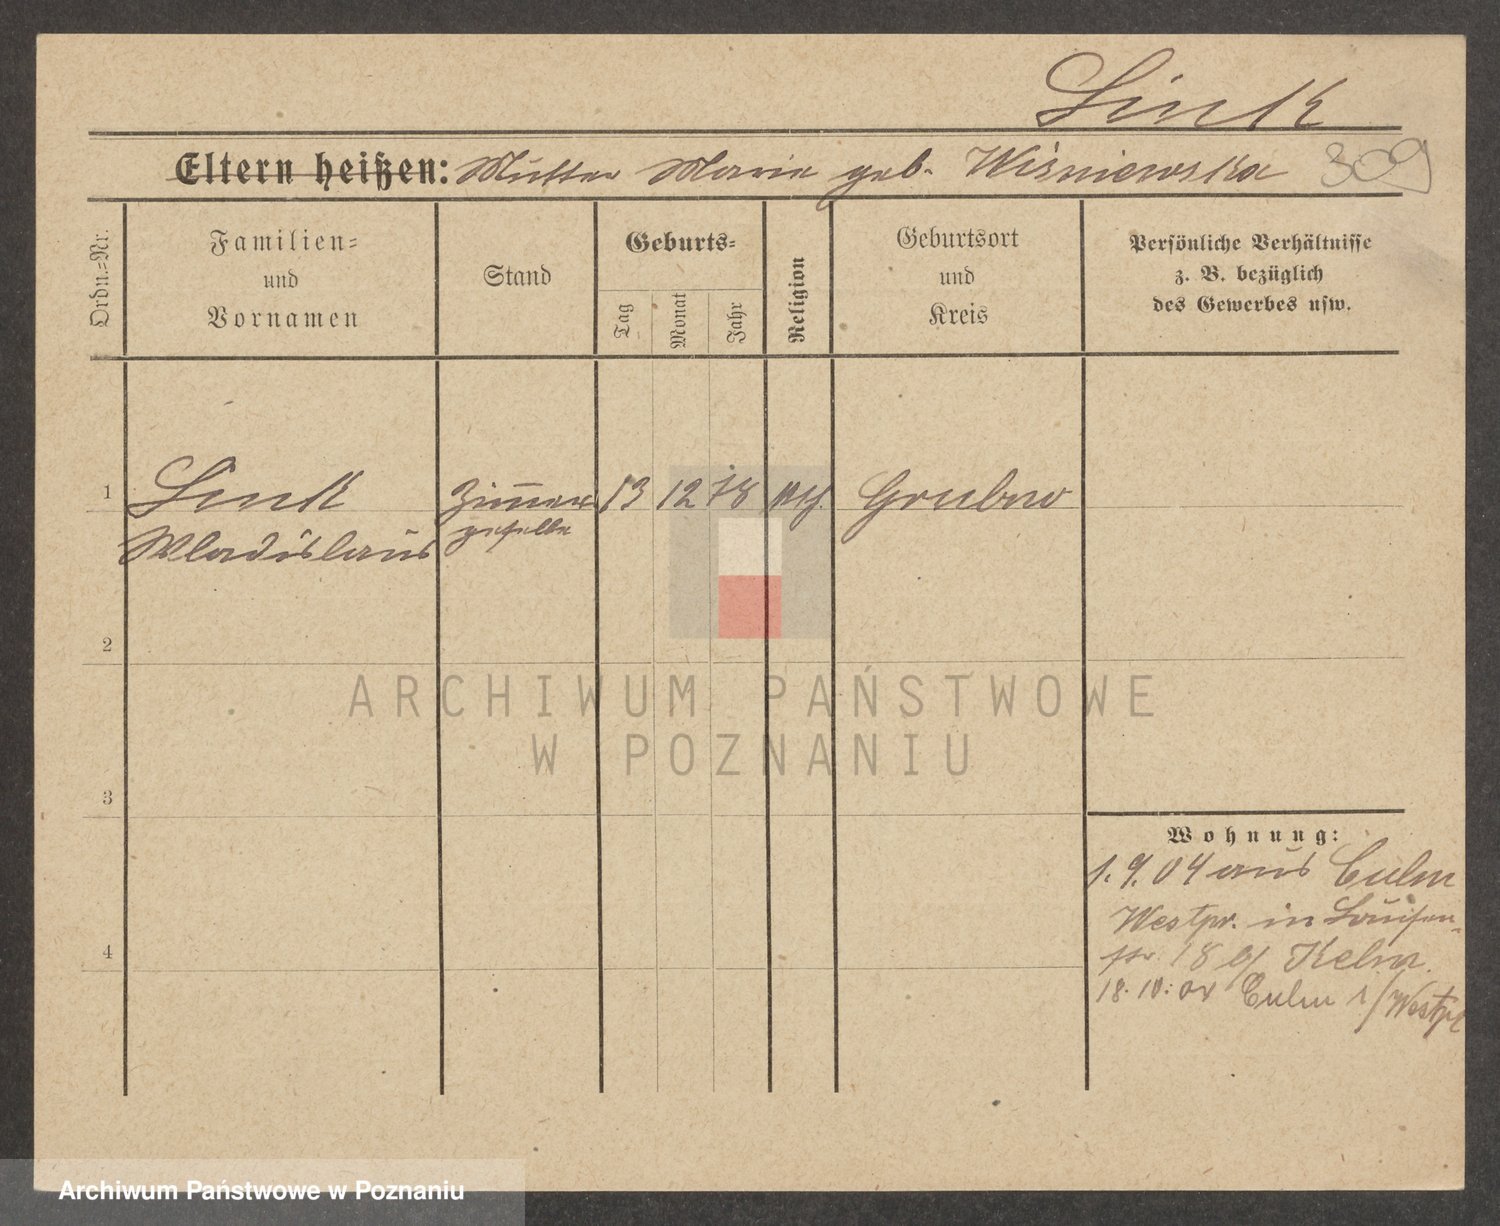 Link
Eltern heißen: Mutter Marie geb. Wiśniewska 309
Ordn.-Nr.
Familien-
und
Vornamen
Stand
Geburts-
Tag
Monat
Jahr
Religion
Geburtsort
und
Kreis
Persönliche Verhältnisse
z. B. bezüglich
des Gewerbes usw.
1 Link Zimmer 13 12 78 kth. Grubno
Wladislaus geselle
2
3
4
Wohnung:
1.9.04 aus Culm
Westpr. in Louisen-
str. 18 b/ Kelm.
18.10.04 Culm i/Westpr
ARCHIWUM PAŃSTWOWE
W POZNANIU
Archiwum Państwowe w Poznaniu